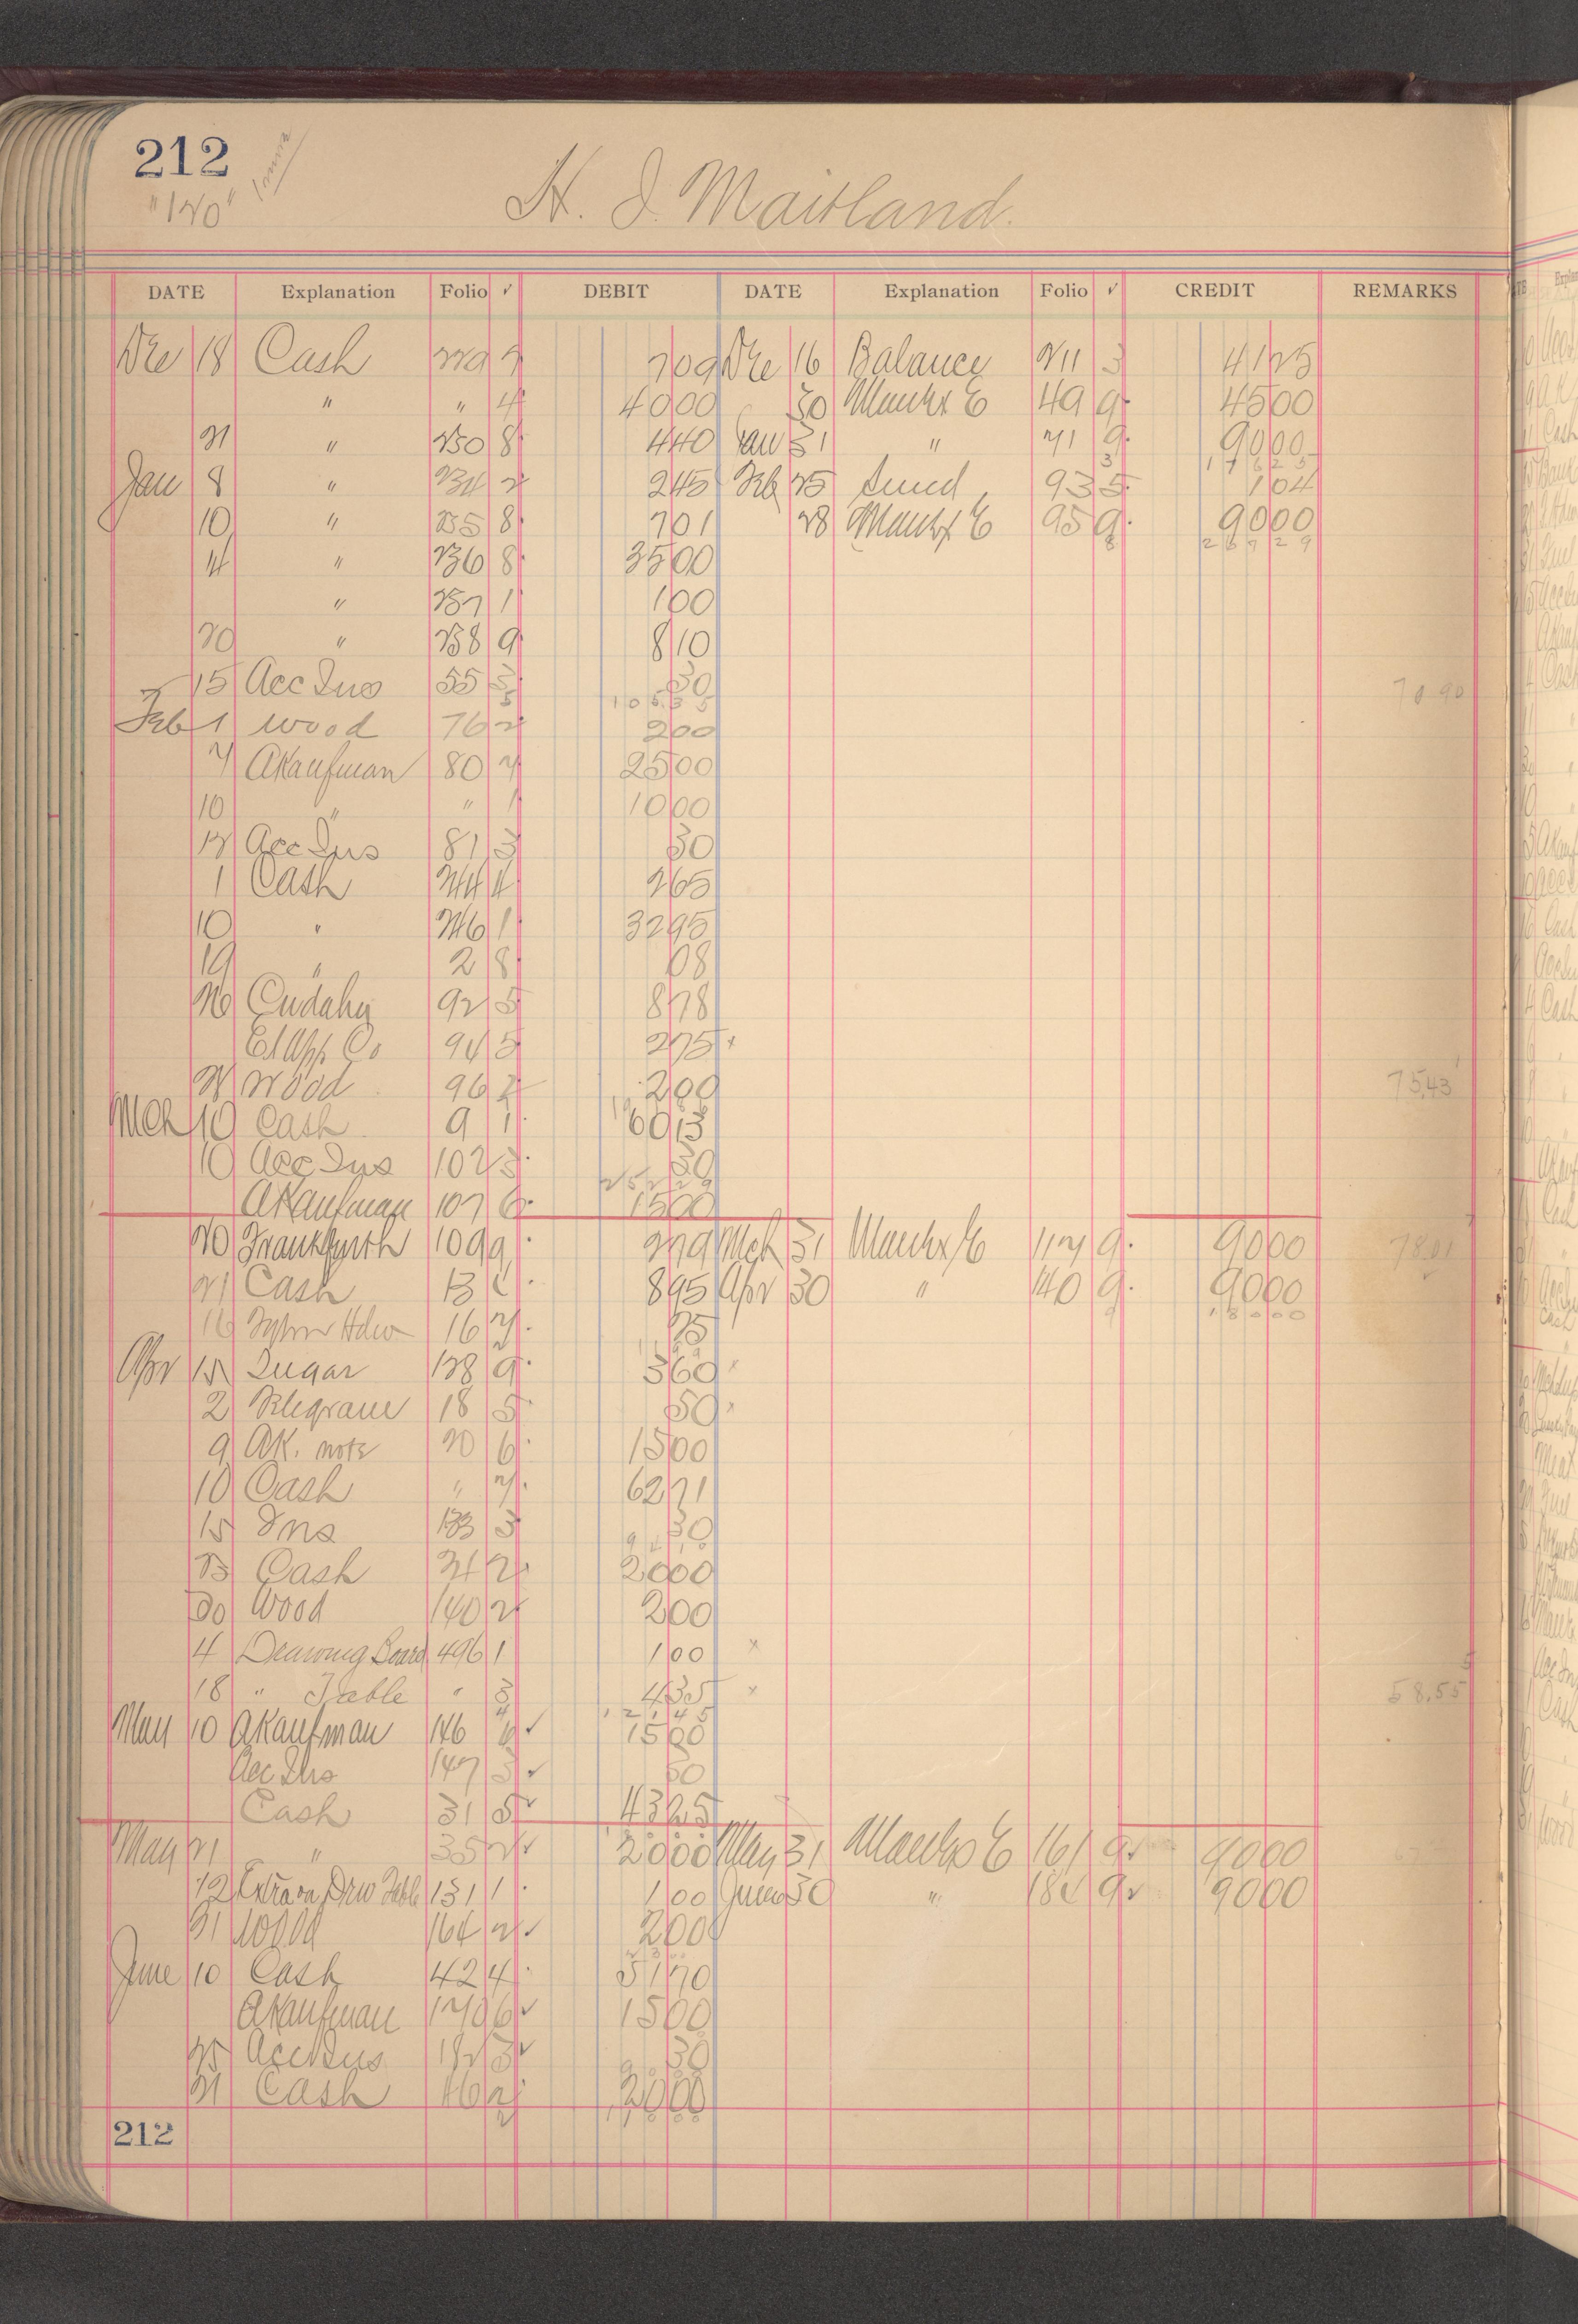 212
"120"
H. J. Maitland.
DATE Explanation Folio ✓ DEBIT DATE Explanation Folio ✓ CREDIT REMARKS
Dec 18 Cash 229 7 709 Dec 16 Balance 211 3 4125
" " 4 4000 30 Manhx E 49 9 4500
21 " 230 8 440 Jan 31 " 71 9 9000
17625
Jan 8 " 234 2 245 Feb 25 Sund 93 5 104
10 " 235 8 701 28 Manhx E 95 9 9000
26729
11 " 236 8 3500
" 237 1 100
20 " 238 9 810
15 Acc Ins 55 3 30 70.90
10535
Feb 1 Wood 76 2 200
7 AKaufman 80 7 2500
10 " " 1 1000
12 Acc Ins 81 3 30
1 Cash 244 4 265
10 " 246 1 3295
19 " 2 8 08
26 Cudahy 92 5 878
El App. Co 94 5 275 x
28 Wood 96 2 200 75.43
Mch 10 Cash 9 1 6013
10 Acc Ins 102 3 30
AKaufman 107 6 1500
20 Frankfurth 109 9 279 Mch 31 Manhx E 117 9 9000 78.01
21 Cash 13 4 895 Apr 30 " 140 9 9000
18000
16 Hdw 16 7 25
Apr 15 Sugar 128 9 360 x
2 Telegram 18 5 50 x
9 AK. note 20 6 1500
10 Cash " 7 6271
15 Ins 133 3 30
23 Cash 24 2 2000
30 Wood 140 2 200
4 Drawing Board 496 1 100 x
18 " Table " 3 435 x 58.55
12145
May 10 AKaufman 146 6 ✓ 1500
Acc Ins 147 3 ✓ 30
Cash 31 5 ✓ 4325
May 21 " 35 2 ✓ 2000 May 31 Manhx E 161 9 ✓ 9000
12 Extra on Drw Table 131 1 100 June 30 " 184 9 ✓ 9000
31 Wood 164 2 ✓ 200
June 10 Cash 42 4 5170
AKaufman 170 6 ✓ 1500
25 Acc Ins 182 3 ✓ 30
21 Cash 46 2 2000
212